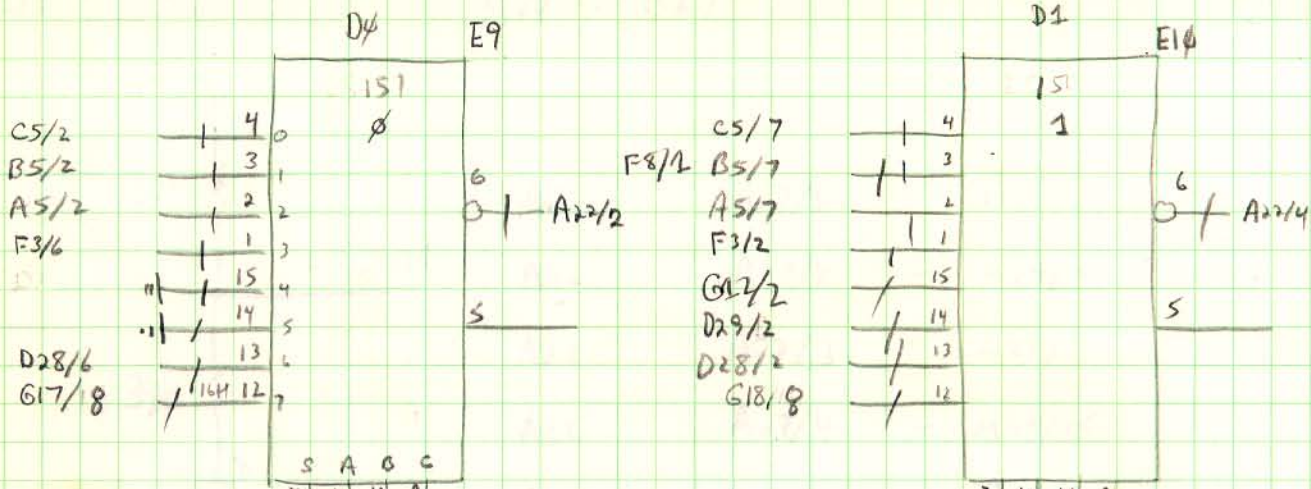 D4 E9
151
0
C5/2 4 0
B5/2 3 1
A5/2 2 2
F3/6 1 3
15 4
14 5
D28/6 13 6
G17/8 16H 12 7
6 A22/2
5
S A B C
D1 E10
151
1
C5/7 4
F8/1 B5/7 3
A5/7 2
F3/2 1
G12/2 15
D29/2 14
D28/2 13
G18/8 12
6 A22/4
5